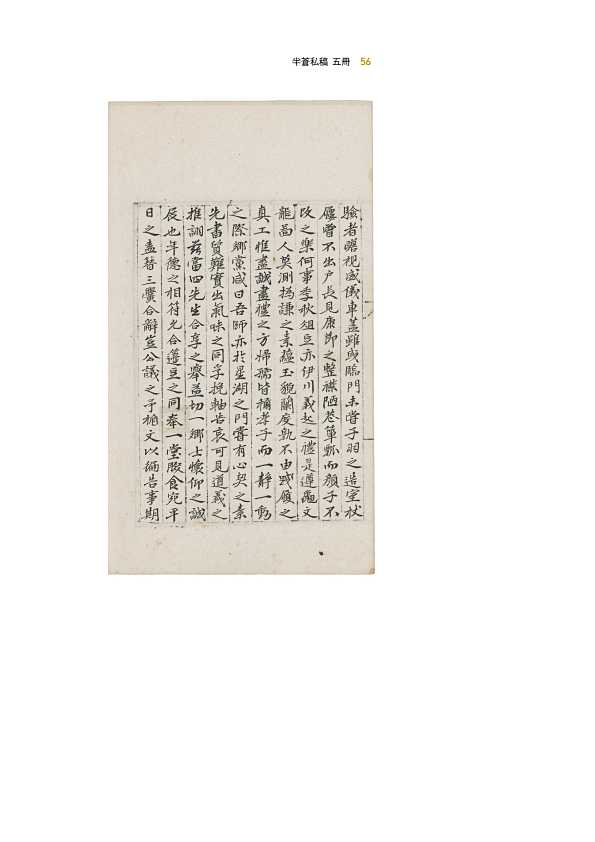 半蒼私稿 五冊 56
驗者瞻視威儀車蓋雖或臨門未嘗子羽之造室杖
屨曾不出戶長見康節之整襟陋巷簞瓢而顏子不
改之樂何事季秋俎豆亦伊川義起之禮是遵龜文
龍啚人莫測撝謙之素蘊玉貌蘭度孰不由踐履之
真工惟盡誠盡禮之方婦孺皆稱孝子而一靜一動
之際鄉黨咸曰吾師亦於星湖之門嘗有心契之素
先書質難實出氣味之同孚挽軸告哀可見道義之
推詡茲當四先生合享之舉益切一鄉士懷仰之誠
辰也年德之相符允合籩豆之同奉一堂腏食宛平
日之盍簪三黌合辭豈公議之矛楯文以緬告事期